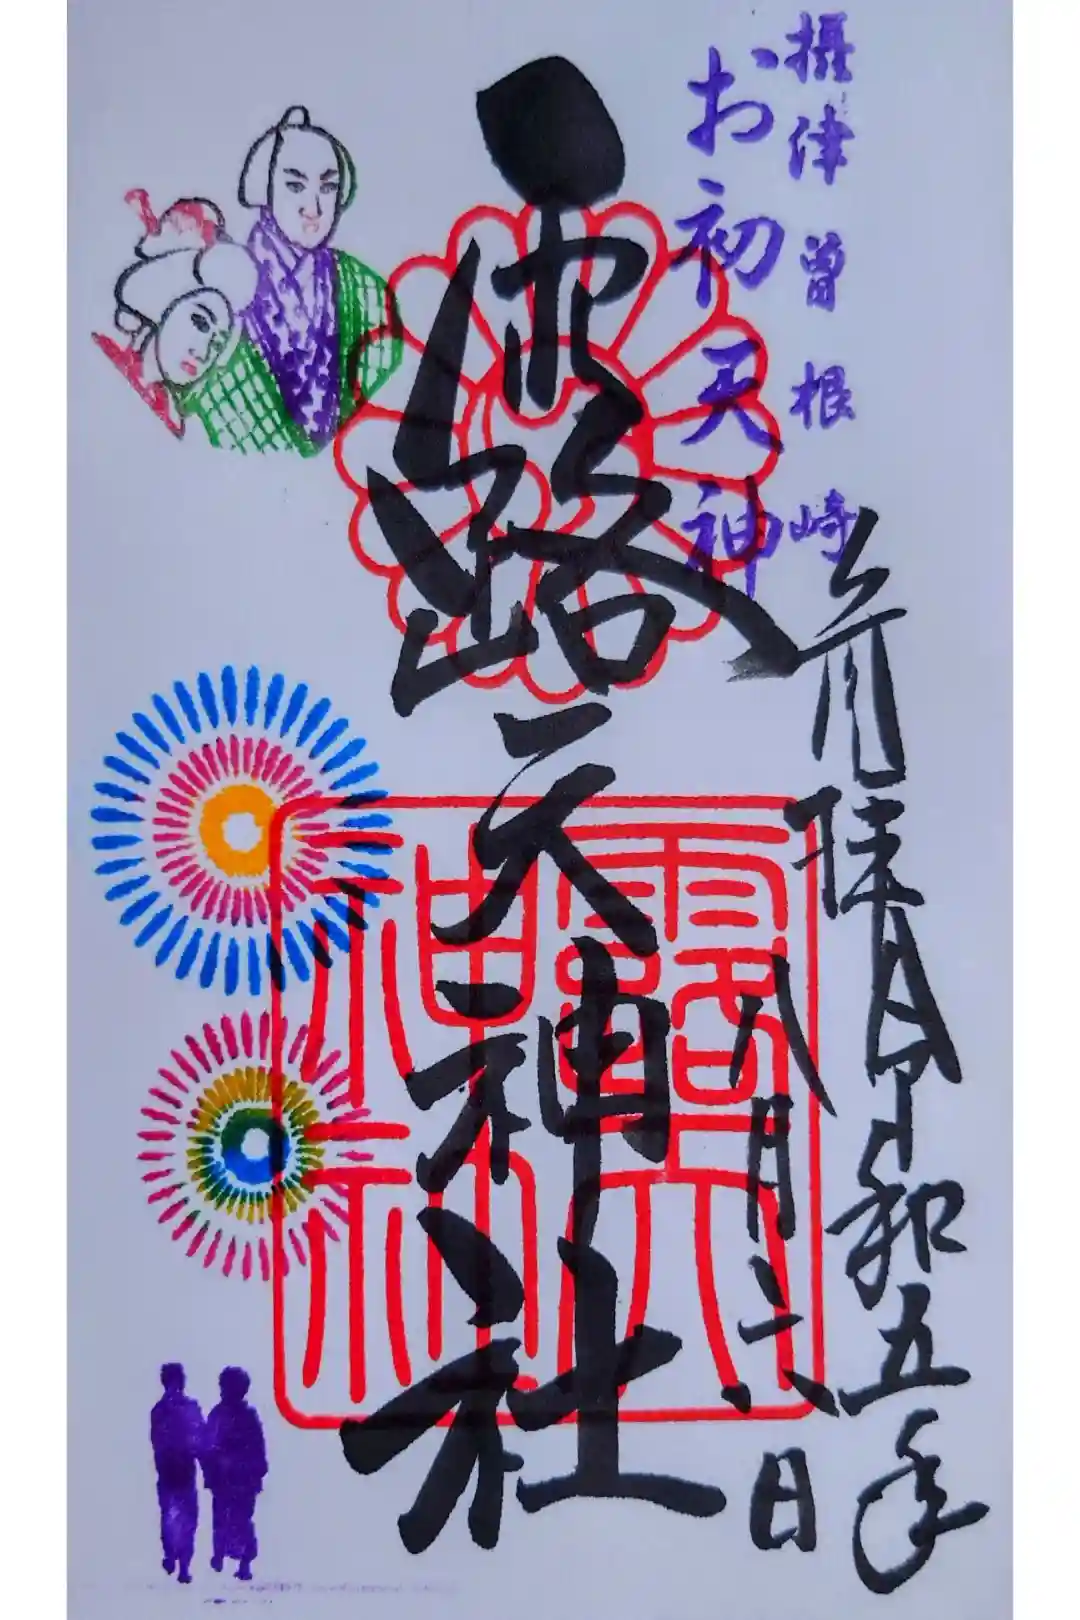 摂津曽根崎
お初天神
参拝 令和五年
八月六日
露天神社
露天
神社